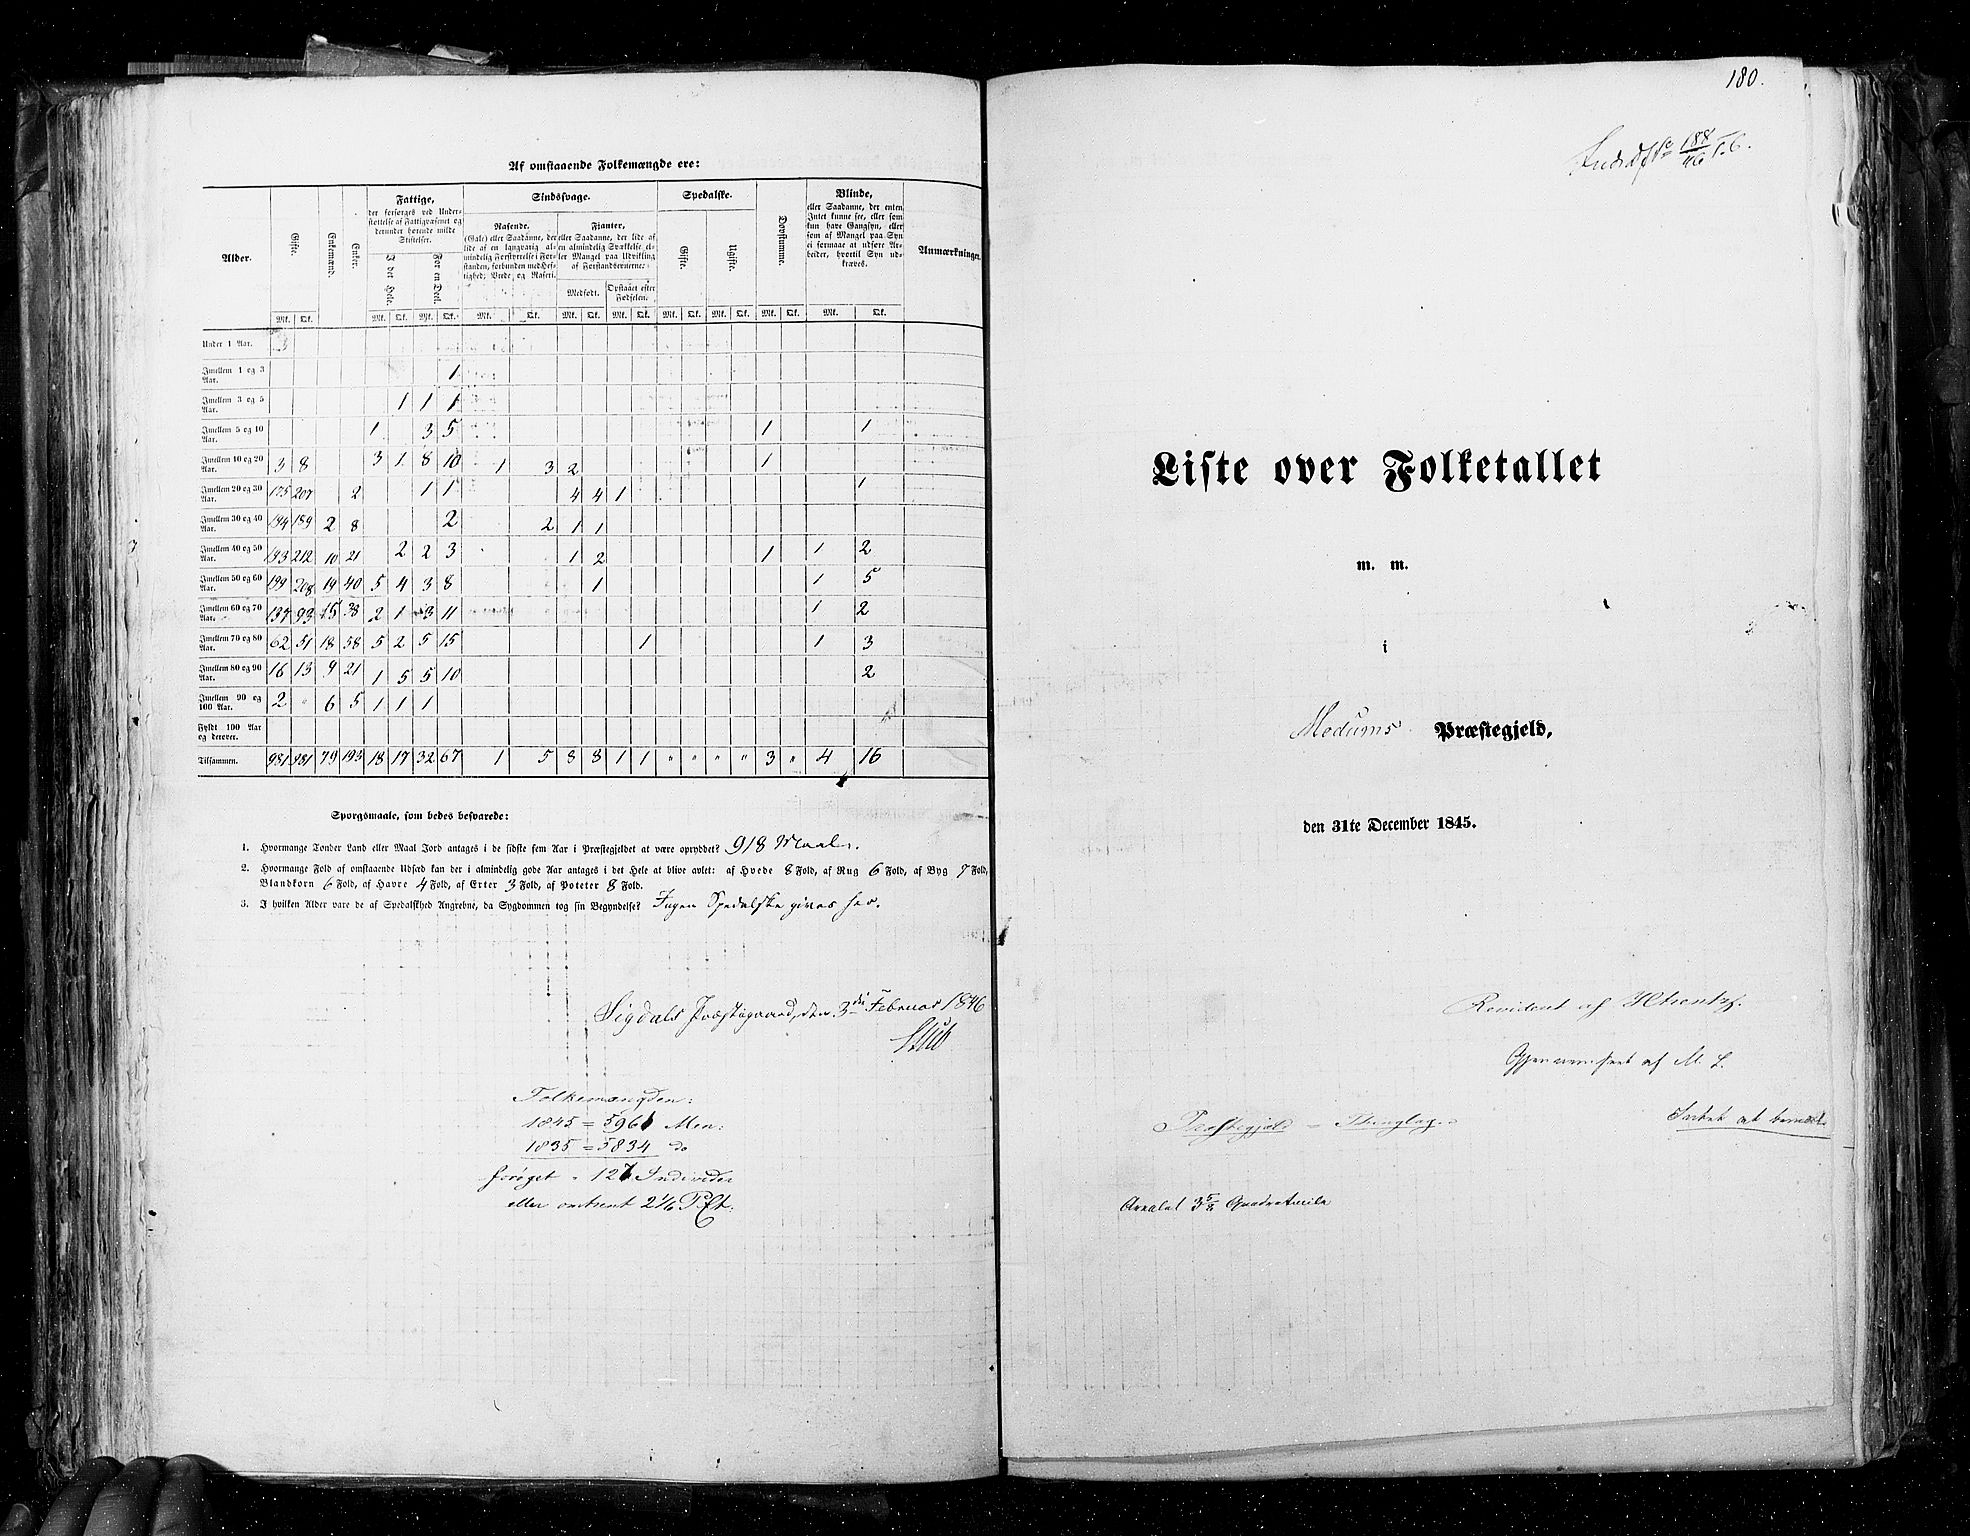 Af omstaaende Folkemængde ere:
Alder. | Gifte. | Enkemænd. | Enker. | Fattige, der forsørges ved Understøttelse af Fattigvæsenet og derunder hørende milde Stiftelser. | Sindssvage. | Spedalske. | Døvstumme. | Blinde, eller Saadanne, der enten Intet kunne see, eller som kun have Gangsyn, eller som af Mangel paa Syn ei formaae at udføre Arbeider, hvortil Syn udkræves. | Anmærkninger.
I det Hele. | For en Deel. | Rasende. (Gale) eller Saadanne, der lide af en langvarig almindelig Forstyrrelse i Forstanden, forbunden med Heftighed, Vrede og Raseri. | Fjanter, eller Saadanne, der lide af en almindelig Svækkelse eller Mangel paa Udvikling af Forstandsevnerne: | Gifte. | Ugifte.
Medfødt. | Opstaaet efter Fødselen.
Mk. | Qk. | Mk. | Qk. | Mk. | Qk. | Mk. | Qk. | Mk. | Qk. | Mk. | Qk. | Mk. | Qk. | Mk. | Qk. | Mk. | Qk. | Mk. | Qk.
Under 1 Aar.
Imellem 1 og 3 Aar. 1
Imellem 3 og 5 Aar. 1 1 1
Imellem 5 og 10 Aar. 1 3 5 1 1
Imellem 10 og 20 Aar. 3 8 3 1 8 10 1 3 2 1
Imellem 20 og 30 Aar. 175 207 2 1 1 4 4 1 1
Imellem 30 og 40 Aar. 194 189 2 8 2 2 1 1
Imellem 40 og 50 Aar. 193 212 10 21 2 2 3 1 2 1 1 2
Imellem 50 og 60 Aar. 199 208 19 40 5 4 3 8 1 1 5
Imellem 60 og 70 Aar. 137 93 15 38 2 1 3 11 1 2
Imellem 70 og 80 Aar. 62 51 18 58 5 2 5 15 1 1 3
Imellem 80 og 90 Aar. 16 13 9 21 1 5 5 10 2
Imellem 90 og 100 Aar. 2 " 6 5 1 1 1
Fyldt 100 Aar og derover.
Tilsammen. 981 981 79 193 18 17 32 67 1 5 8 8 1 1 " " " " 3 " 4 16
Spørgsmaale, som bedes besvarede:
1. Hvormange Tønder Land eller Maal Jord antages i de sidste fem Aar i Præstegjeldet at være opryddet? 918 Maal.
2. Hvormange Fold af omstaaende Udsæd kan der i almindelig gode Aar antages i det Hele at blive avlet: af Hvede 8 Fold, af Rug 6 Fold, af Byg 7 Fold,
Blandkorn 6 Fold, af Havre 4 Fold, af Erter 3 Fold, af Poteter 8 Fold.
3. I hvilken Alder vare de af Spedalskhed Angrebne, da Sygdommen tog sin Begyndelse? Ingen Spedalske gives her.
Sigdals Præstegaard, den 3die Februar 1846
Folkemængden:
1845 = 5961 Men:
1835 = 5834 do
forøget = 127 Individer
eller omtrent 2 1/6 PCt.
180.
188/46
Liste over Folketallet
m. m.
i
Modums Præstegjeld,
den 31te December 1845.
Revideret af
Gjennemseet af M. L.
Præstegjeld = Thinglag
Arealet 3 5/8 Quadratmile